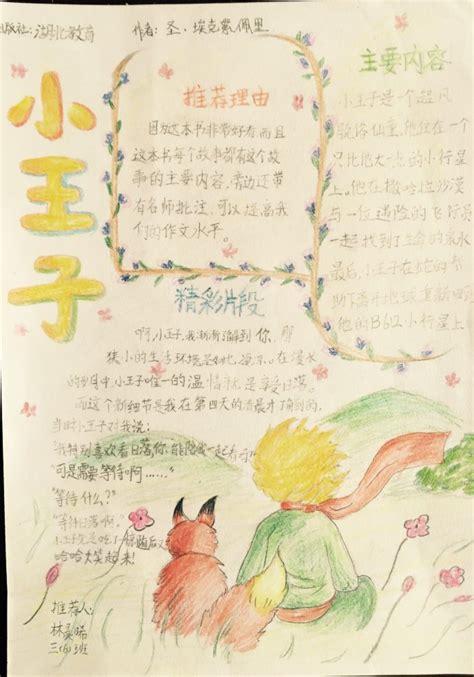 出版社:湖北教育
作者:圣·埃克苏佩里
小王子
推荐理由
因为这本书非常好看而且
这本书每个故事都有这个故
事的主要内容,旁边还带
有名师批注,可以提高我
们的作文水平。
主要内容
小王子是一个超凡
脱俗仙童,他住在一个
只比他大一点的小行星
上。他在撒哈拉沙漠
与一位遇险的飞行员
一起找到了生命的泉水
最后,小王子在蛇的帮
助下离开地球重新回到
他的B612小行星上
精彩片段
啊,小王子,我渐渐了解到你,那
狭小的生活环境是如此 在漫长
的岁月中,小王子唯一的温情就是享受日落。
而这个新细节是我在第四天的清晨才了解到的。
当时小王子对我说:
"我特别喜欢看日落你,能陪我一起看吗?"
"可是需要等待啊……"
"等待什么?"
"等待日落啊。"
小王子先是吃了一惊,随后又
哈哈大笑起来!
推荐人:
林 晞
三 班